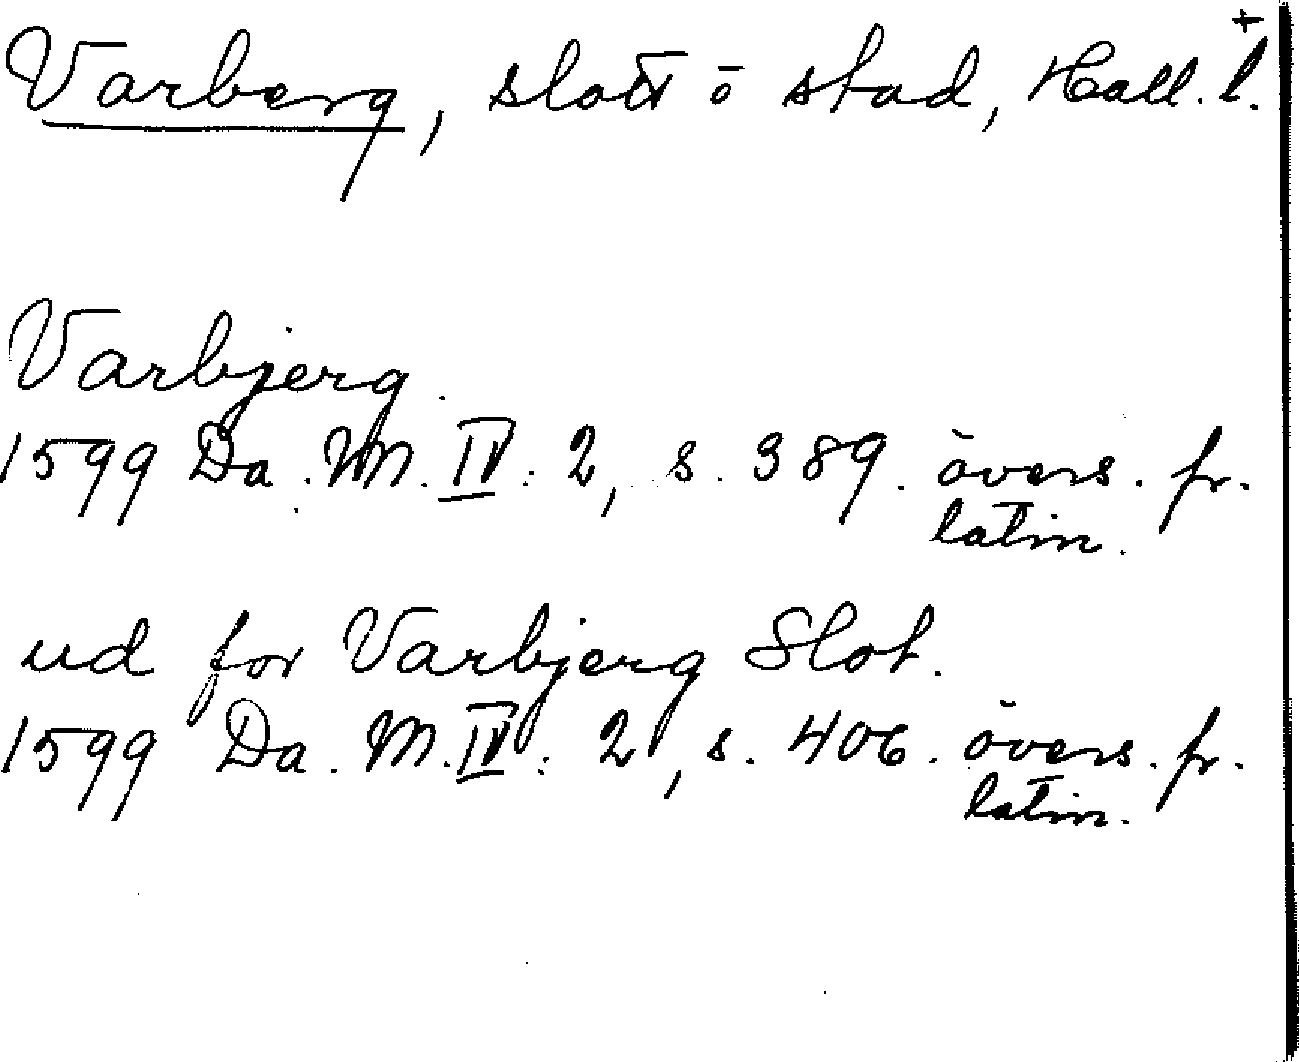 +
Varberg, slott ō stad, Hall. l.
Varbjerg.
1599 Da. M. IV. 2, s. 389. övers. fr.
latin.
ud for Varbjerg Slot.
1599 Da. M. IV. 2, s. 406. övers. fr.
latin.